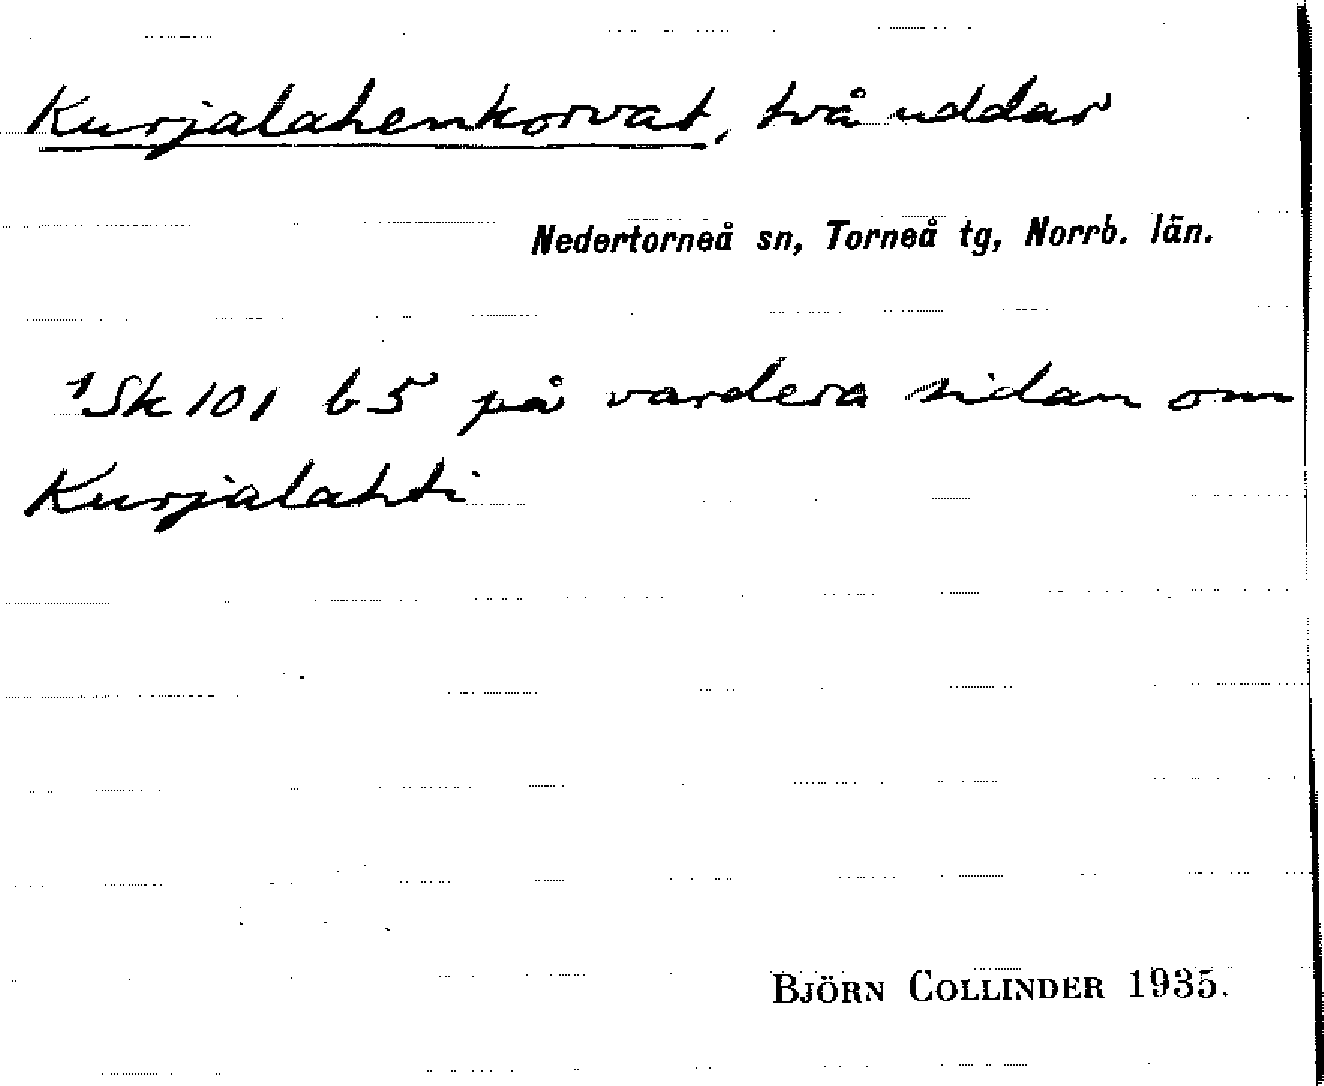 Kurjalahenkorvat, två uddar
Nedertorneå sn, Torneå tg, Norrb. län.
1Sk 101 b5 på vardera sidan om
Kurjalahti
BJÖRN COLLINDER 1935.